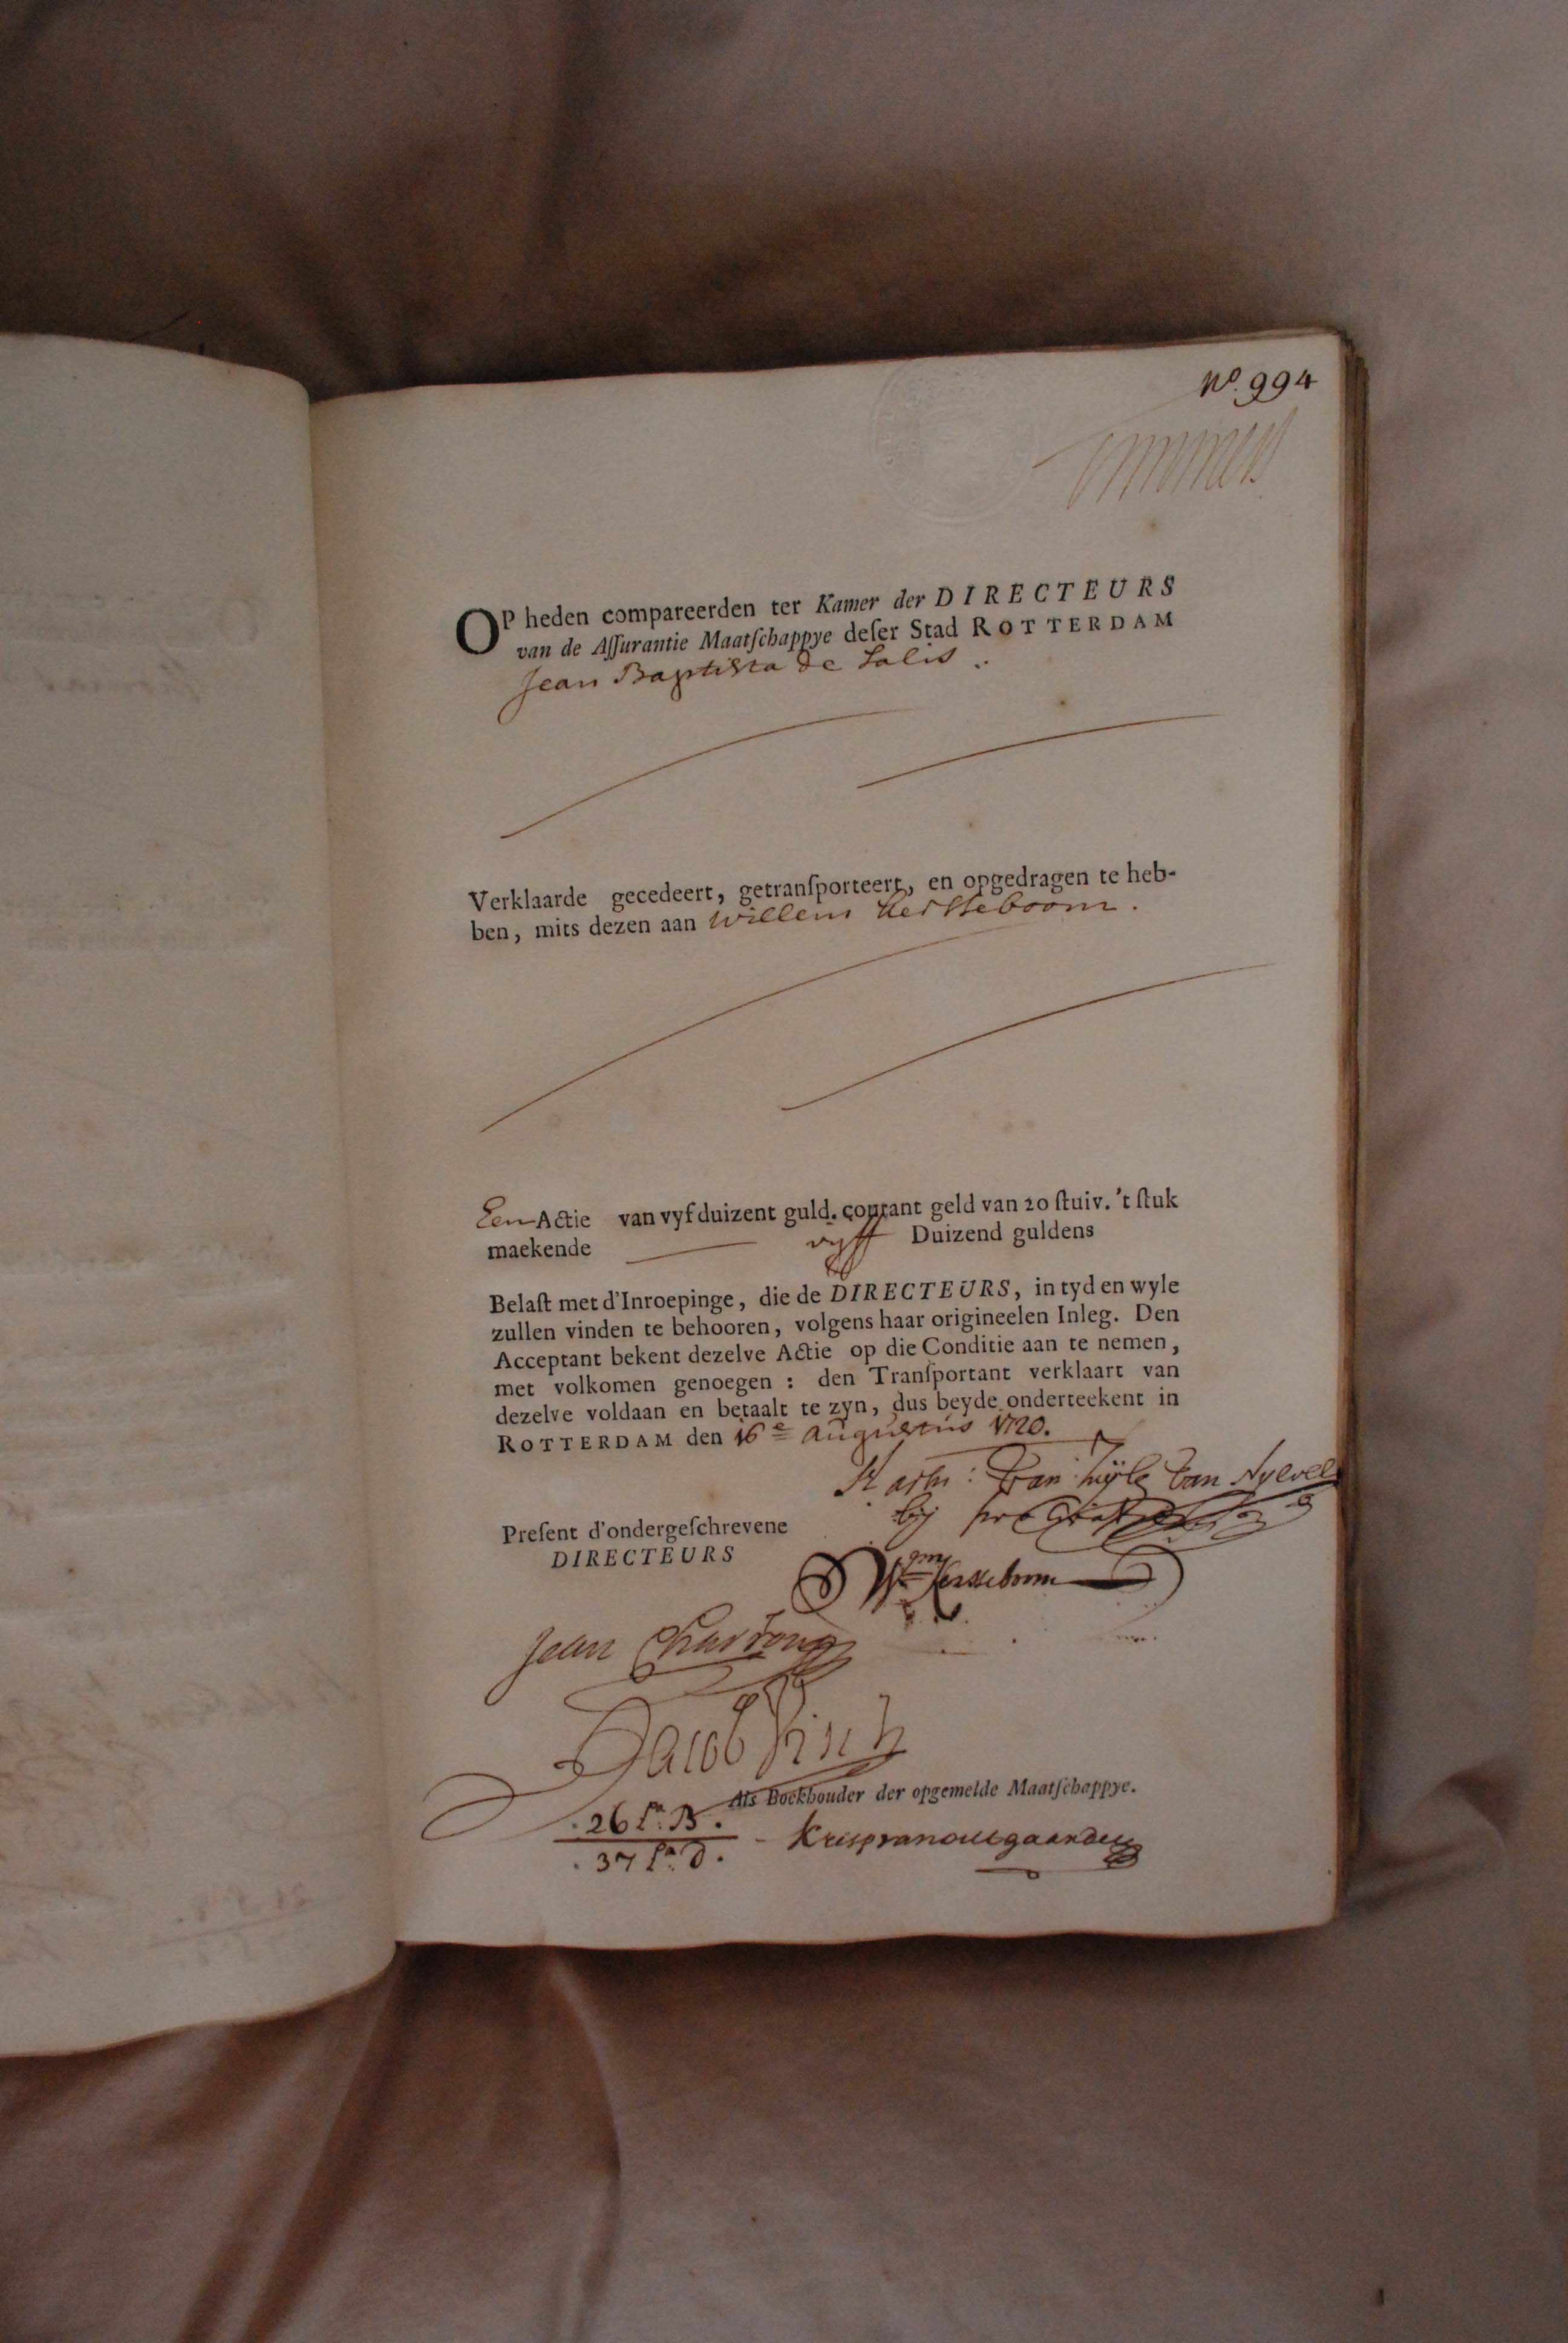 No. 994
OP heden compareerden ter Kamer der DIRECTEURS
van de Aſſurantie Maatſchappye deſer Stad ROTTERDAM
Jean Baptista de Salis.
Verklaarde gecedeert, getranſporteert, en opgedragen te heb-
ben, mits dezen aan Willem Kersseboom.
Een Actie van vyf duizent guld. courant geld van 20 ſtuiv. 't ſtuk
maekende vyff Duizend guldens
Belaſt met d'Inroepinge, die de DIRECTEURS, in tyd en wyle
zullen vinden te behooren, volgens haar origineelen Inleg. Den
Acceptant bekent dezelve Actie op die Conditie aan te nemen,
met volkomen genoegen : den Tranſportant verklaart van
dezelve voldaan en betaalt te zyn, dus beyde onderteekent in
ROTTERDAM den 16e augustus 1720.
van Zuijle van Nyevelt
bij
Preſent d'ondergeſchrevene
DIRECTEURS
Wm Kersseboom
Jean Charron
Jacob Visch
Als Boekhouder der opgemelde Maatſchappye.
26 La. B.
37 La. D.
Krisp van outgaarden